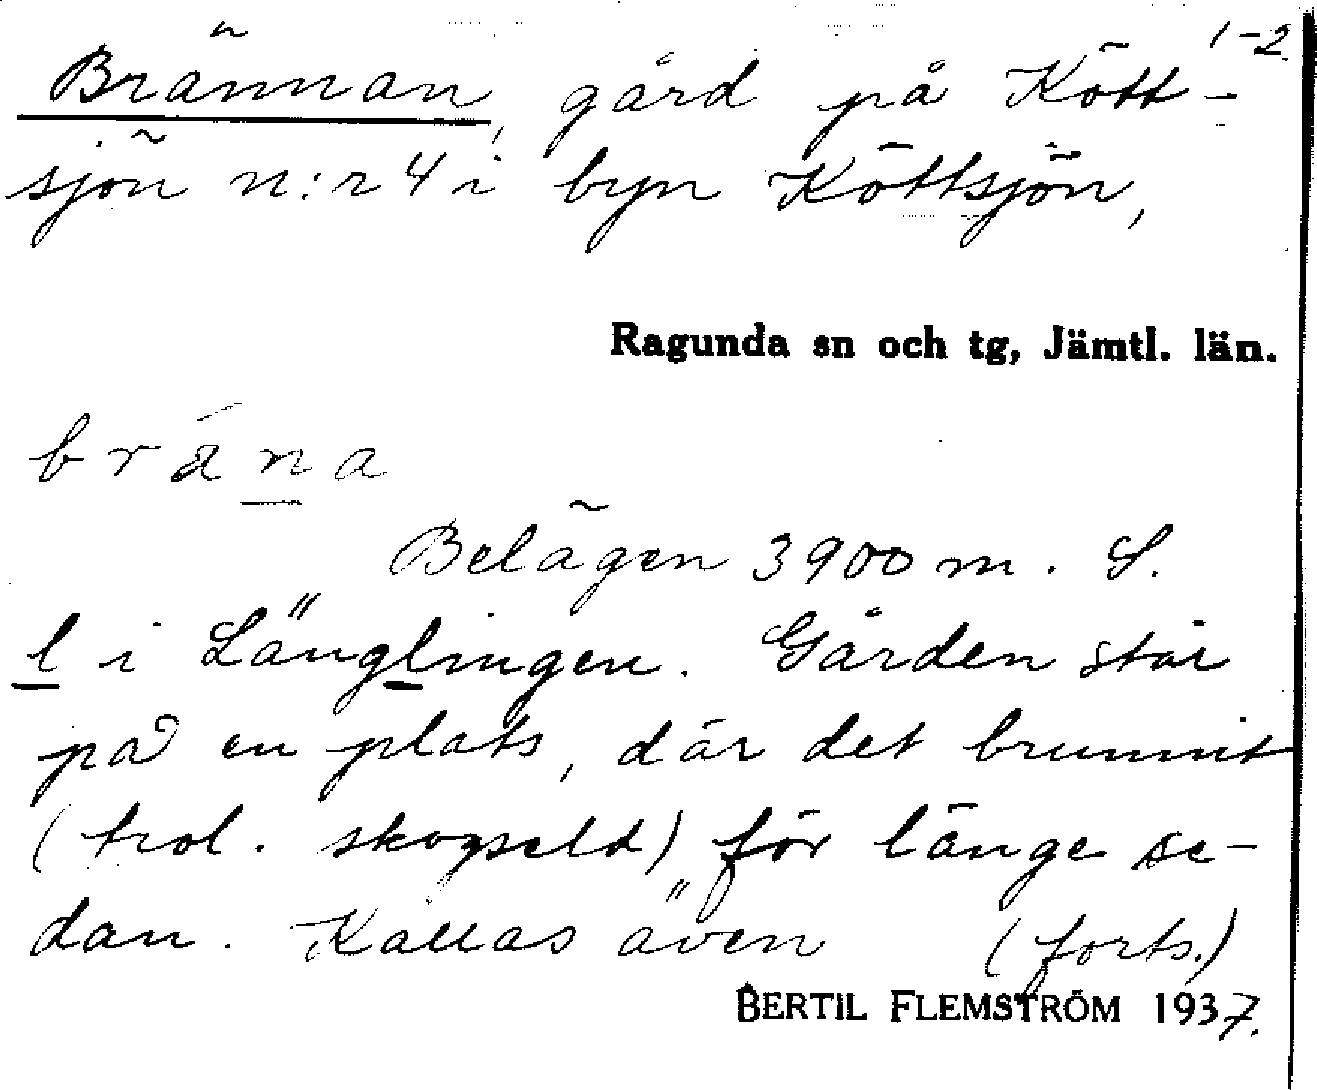 1-2
Brännan, gård på Kött-
sjön n:r 4 i byn Köttsjön,
Ragunda sn och tg, Jämtl. län.
bräna
Belägen 3900 m. S.
l i Länglingen. Gården står
på en plats, där det brunnit
(trol. skogseld) för länge se-
dan. Kallas även (forts.)
BERTIL FLEMSTRÖM 1937.